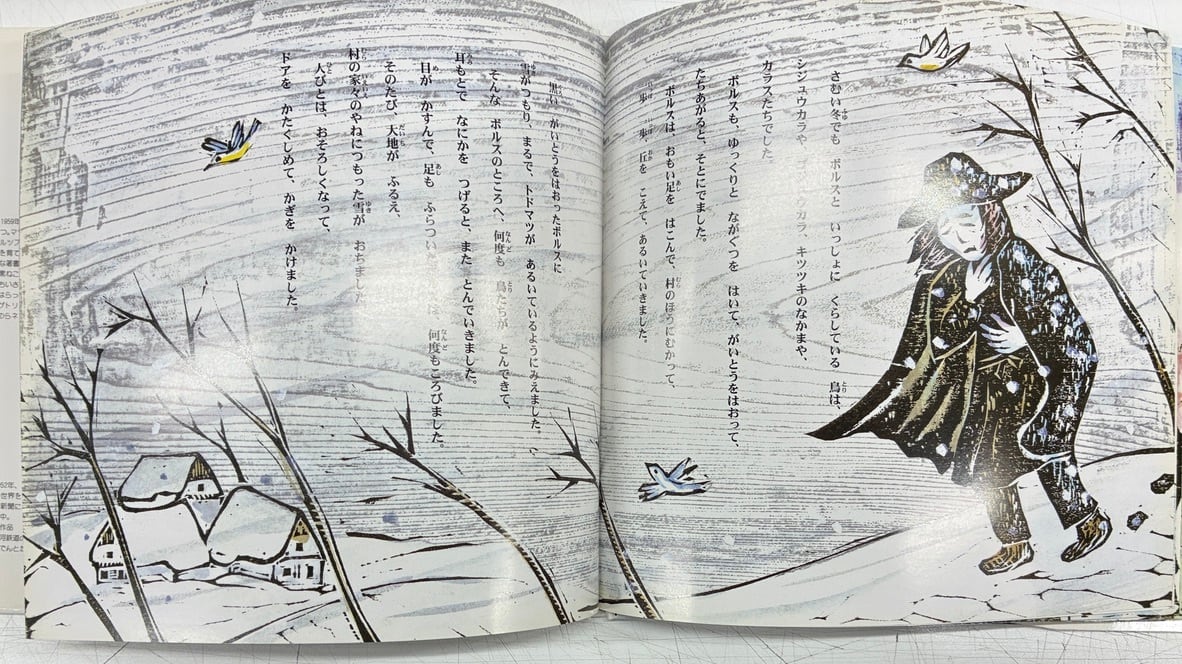 さむい冬でも ボルスと いっしょに くらしている 鳥は、
シジュウカラや、ゴジュウカラ、キツツキのなかまや、
カラスたちでした。
ボルスも、ゆっくりと ながぐつを はいて、がいとうをはおって、
たちあがると、そとにでました。
ボルスは、おもい足を はこんで、村のほうにむかって、
一歩 一歩 丘を こえて、あるいていきました。
黒い がいとうをはおったボルスに
雪がつもり、まるで、トドマツが あるいているようにみえました。
そんな ボルスのところへ、何度も 鳥たちが とんできて、
耳もとで なにかを つげると、また とんでいきました。
目が かすんで、足も ふらついた は、何度もころびました。
そのたび、大地が ふるえ、
村の家々のやねにつもった雪が おちました
人びとは、おそろしくなって、
ドアを かたくしめて、かぎを かけました。
1959年
つ。マ
ルソフ
を育て
な著書
ちいさ
はらっ
のらネ
世界を
新聞に
中。
作品
河鉄道の